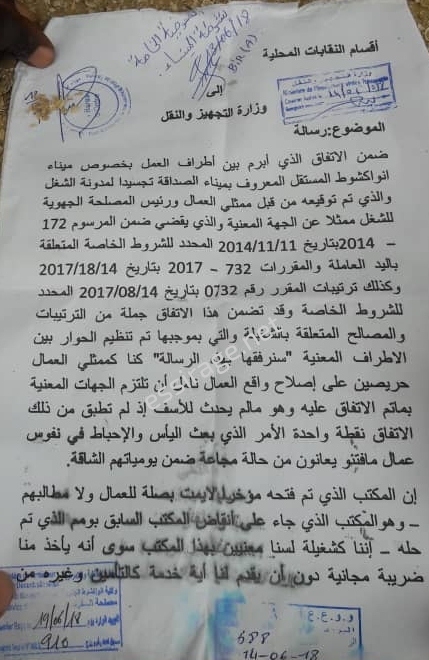 أقسام النقابات المحلية
إلى
وزارة التجهيز والنقل
الموضوع:رسالة
ضمن الاتفاق الذي أبرم بين أطراف العمل بخصوص ميناء
انواكشوط المستقل المعروف بميناء الصداقة تجسيدا لمدونة الشغل
والذي تم توقيعه من قبل ممثلي العمال ورئيس المصلحة الجهوية
للشغل ممثلا عن الجهة المعنية والذي يقضي ضمن المرسوم 172
– 2014بتاريخ 2014/11/11 المحدد للشروط الخاصة المتعلقة
باليد العاملة والمقررات 732 – 2017 بتاريخ 2017/18/14
وكذلك ترتيبات المقرر رقم 0732 بتاريخ 2017/08/14 المحدد
للشروط الخاصة وقد تضمن هذا الاتفاق جملة من الترتيبات
والمصالح المتعلقة بالشغيلة والتي بموجبها تم تنظيم الحوار بين
الاطراف المعنية "سنرفقها بهذه الرسالة" كنا كممثلي العمال
حريصين على إصلاح واقع العمال نامل أن تلتزم الجهات المعنية
بماتم الاتفاق عليه وهو مالم يحدث للأسف إذ لم تطبق من ذلك
الاتفاق نقطة واحدة الأمر الذي بعث اليأس والإحباط في نفوس
عمال مافتئو يعانون من حالة مجاعة ضمن يومياتهم الشاقة.
إن المكتب الذي تم فتحه مؤخرا لايمت بصلة للعمال ولا مطالبهم
– وهو المكتب الذي جاء على أنقاض المكتب السابق بومم الذي تم
حله – إننا كشغيلة لسنا معنيين بهذا المكتب سوى أنه يأخذ منا
ضريبة مجانية دون أن يقدم لنا أية خدمة كالتأمين وغيره من
essirage.net
13/06/18
BIR(A)
19/06/18
910
588
14-06-18